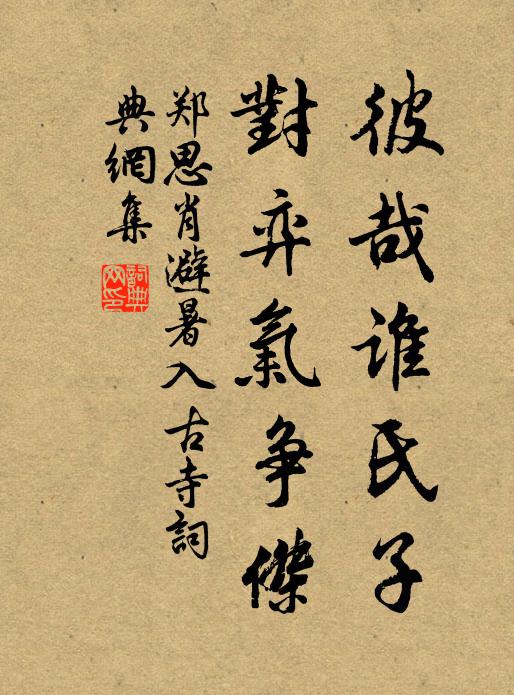 彼哉誰氏子
對弈氣争傑
郑思肖避暑入古寺詞
典網集
詞典
网印